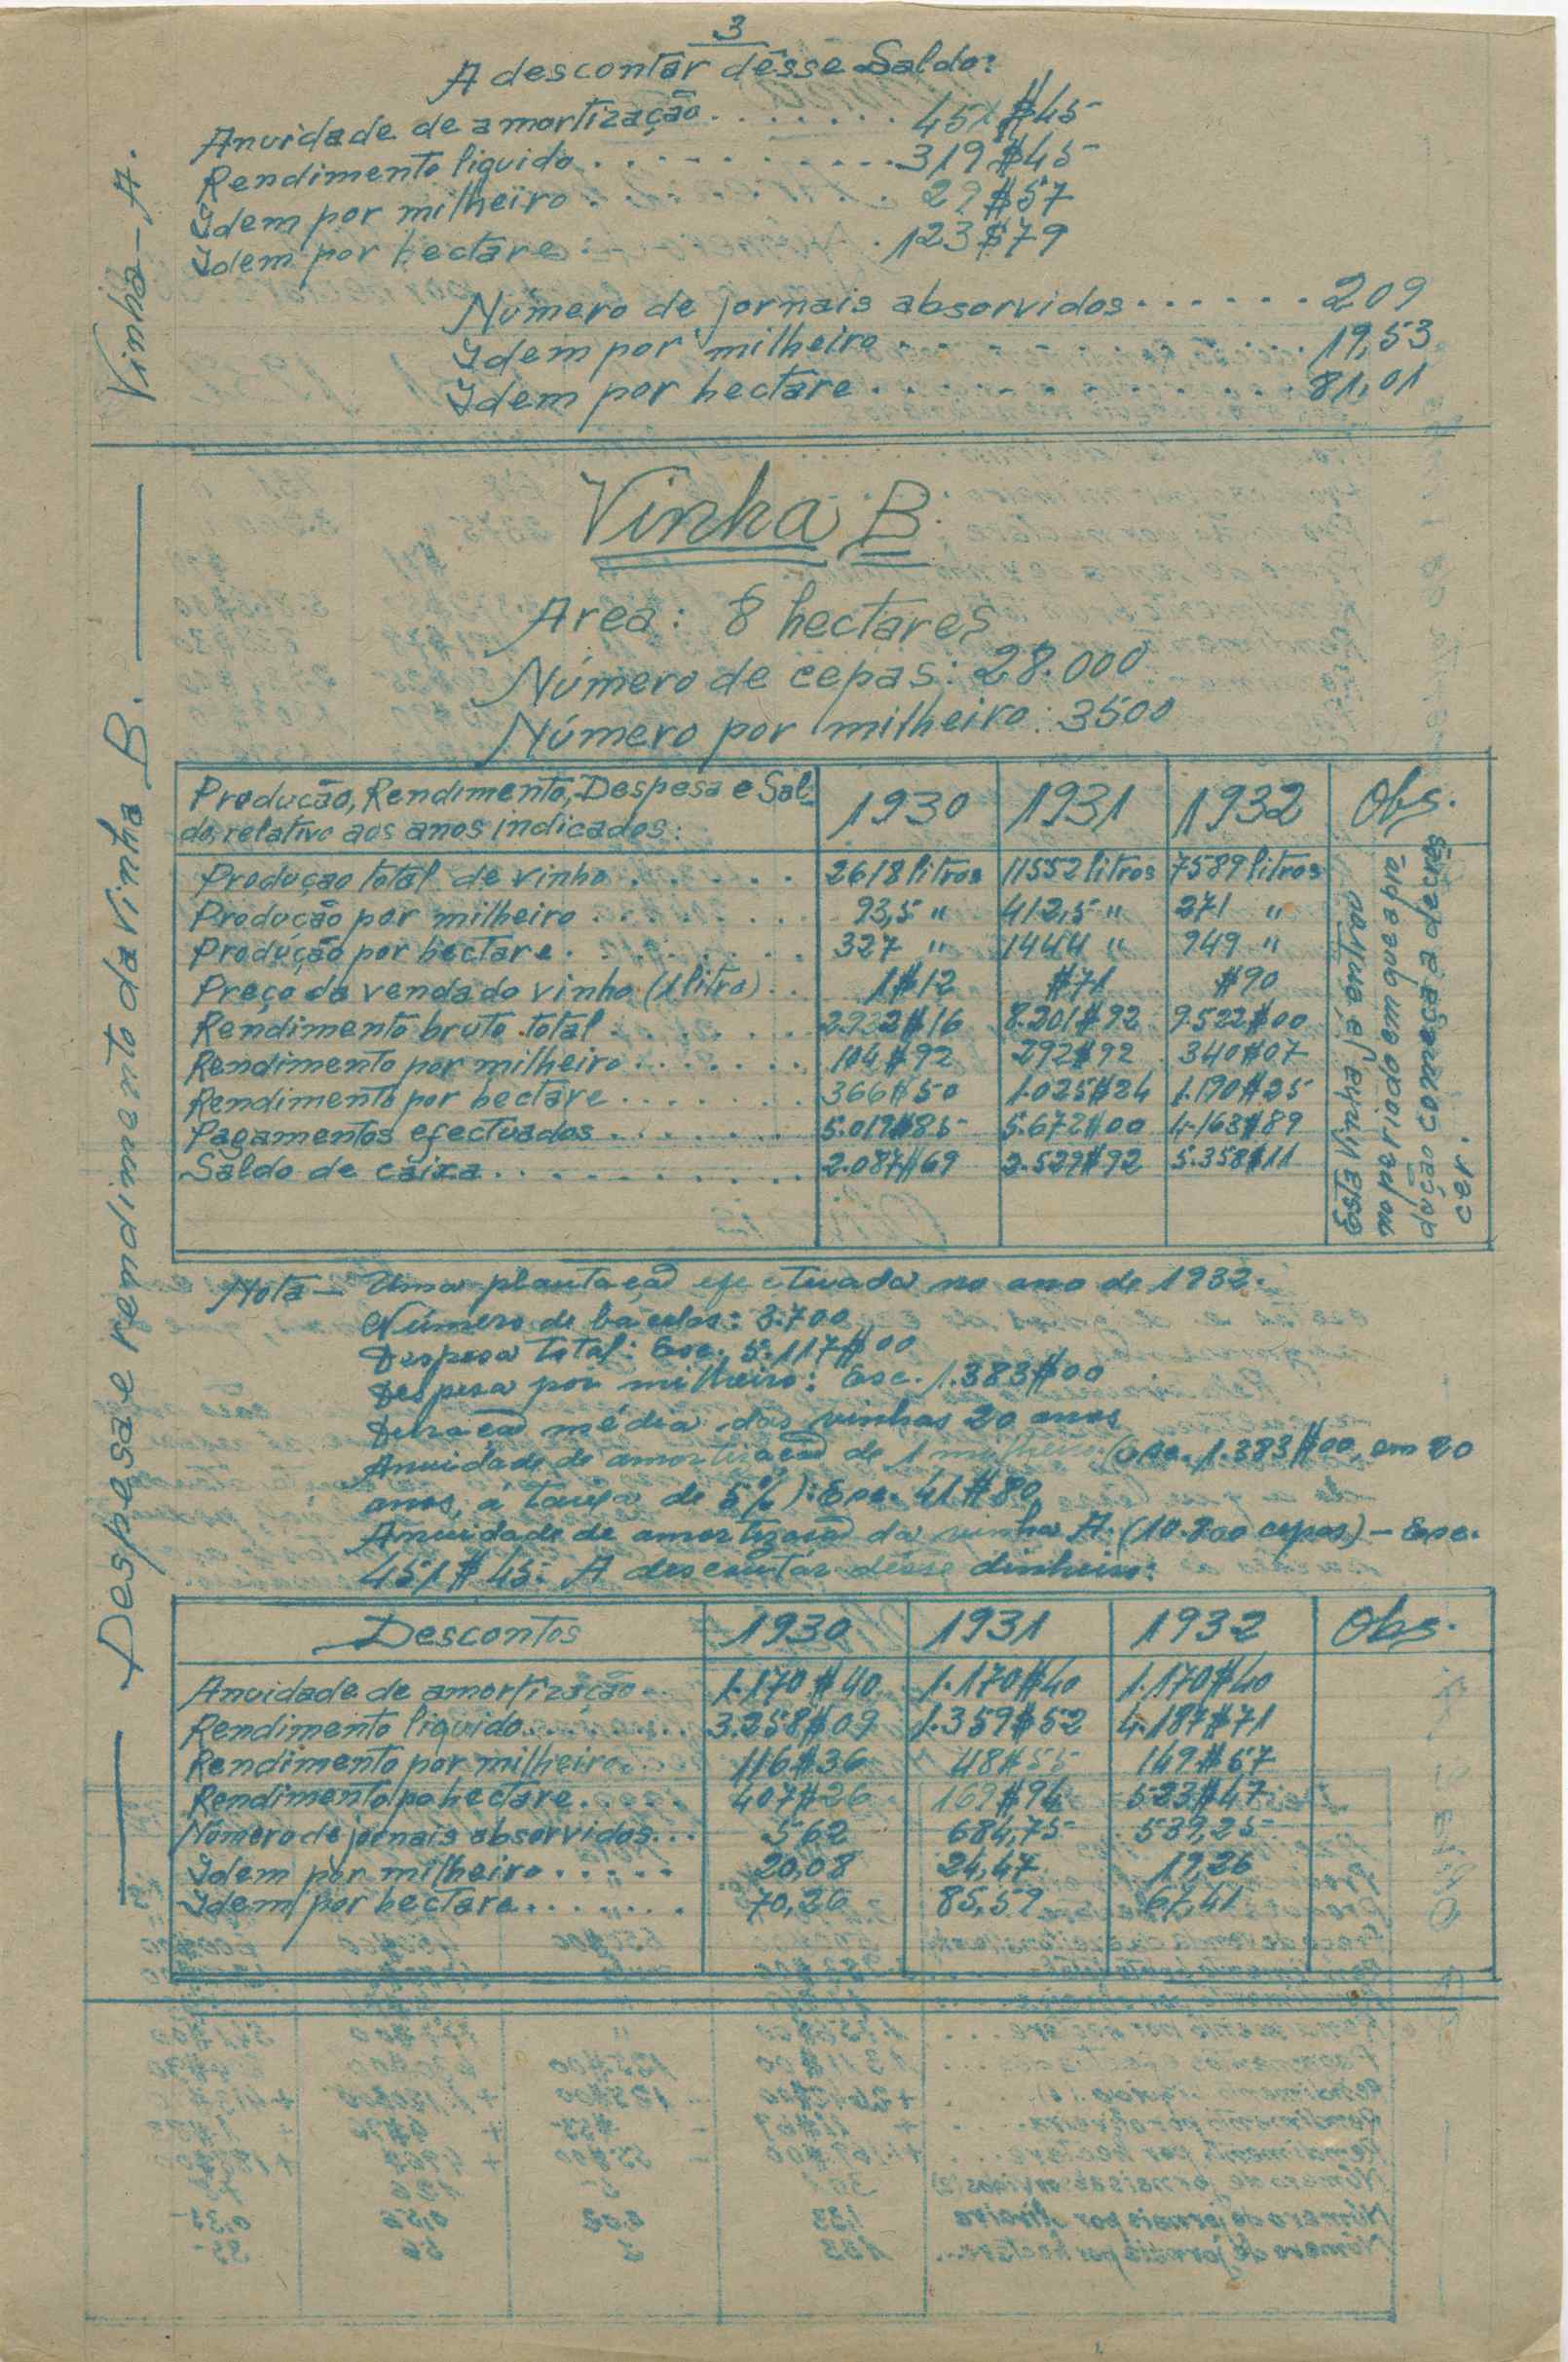 3
A descontar dêsse Saldo:
Anuidade de amortização........ 451$45
Rendimento liquido........... 319$45
Idem por milheiro. 29$57
Idem por hectare. 123$79
Número de jornais absorvidos...... 209
Idem por milheiro............ 19,53
Idem por hectare............ 81,01
Vinha-A.
Vinha B.
Area: 8 hectares
Número de cepas: 28.000
Número por milheiro: 3500
Despesa e rendimento da Vinha B.
Producão, Rendimento, Despesa e Sal- 1930 1931 1932 Obs.
do, relativo aos anos indicados:
Produçao total de vinho...... 2618 litros 11552 litros 7589 litros
Producão por milheiro....... 93,5 " 412,5 " 271 "
Producão por hectare....... 327 " 1444 " 949 "
Preço da venda do vinho (1 litro).. 1$12 $71 $90
Rendimento bruto total...... 2.932$16 8.201$92 9.522$00
Rendimento por milheiro....... 104$92 292$92 340$07
Rendimento por hectare....... 366$50 1.025$24 1.190$25
Pagamentos efectuados....... 5.019$85 5.672$00 4.163$89
Saldo de caixa.......... 2.087$69 2.529$92 5.358$11
Esta vinha é antiga
no periodo em que a pro
dução começa a decres
cer.
Nota — Uma plantação efectuada no ano de 1932.
Número de bacelos: 3.700
Despesa total: Esc. 5.117$00
Despesa por milheiro: Esc. 1.383$00
Duração média das vinhas 20 anos
Anuidade de amortização de 1 milheiro (Esc. 1.383$00, em 20
anos, á taxa de 5%): Esc. 41$80
Anuidade de amortização da vinha A. (10.800 cepas) — Esc.
451$45. A descontar dêsse dinheiro:
Descontos 1930 1931 1932 Obs.
Anuidade de amortização... 1.170$40 1.170$40 1.170$40
Rendimento liquido....... 3.258$09 1.359$52 4.187$71
Rendimento por milheiro.. 116$36 48$55 149$57
Rendimento po hectare..... 407$26 169$94 523$47
Número de jornais absorvidos... 562 684,75 539,25
Idem por milheiro..... 20,08 24,47 19,26
Idem por hectare....... 70,26 85,59 67,41